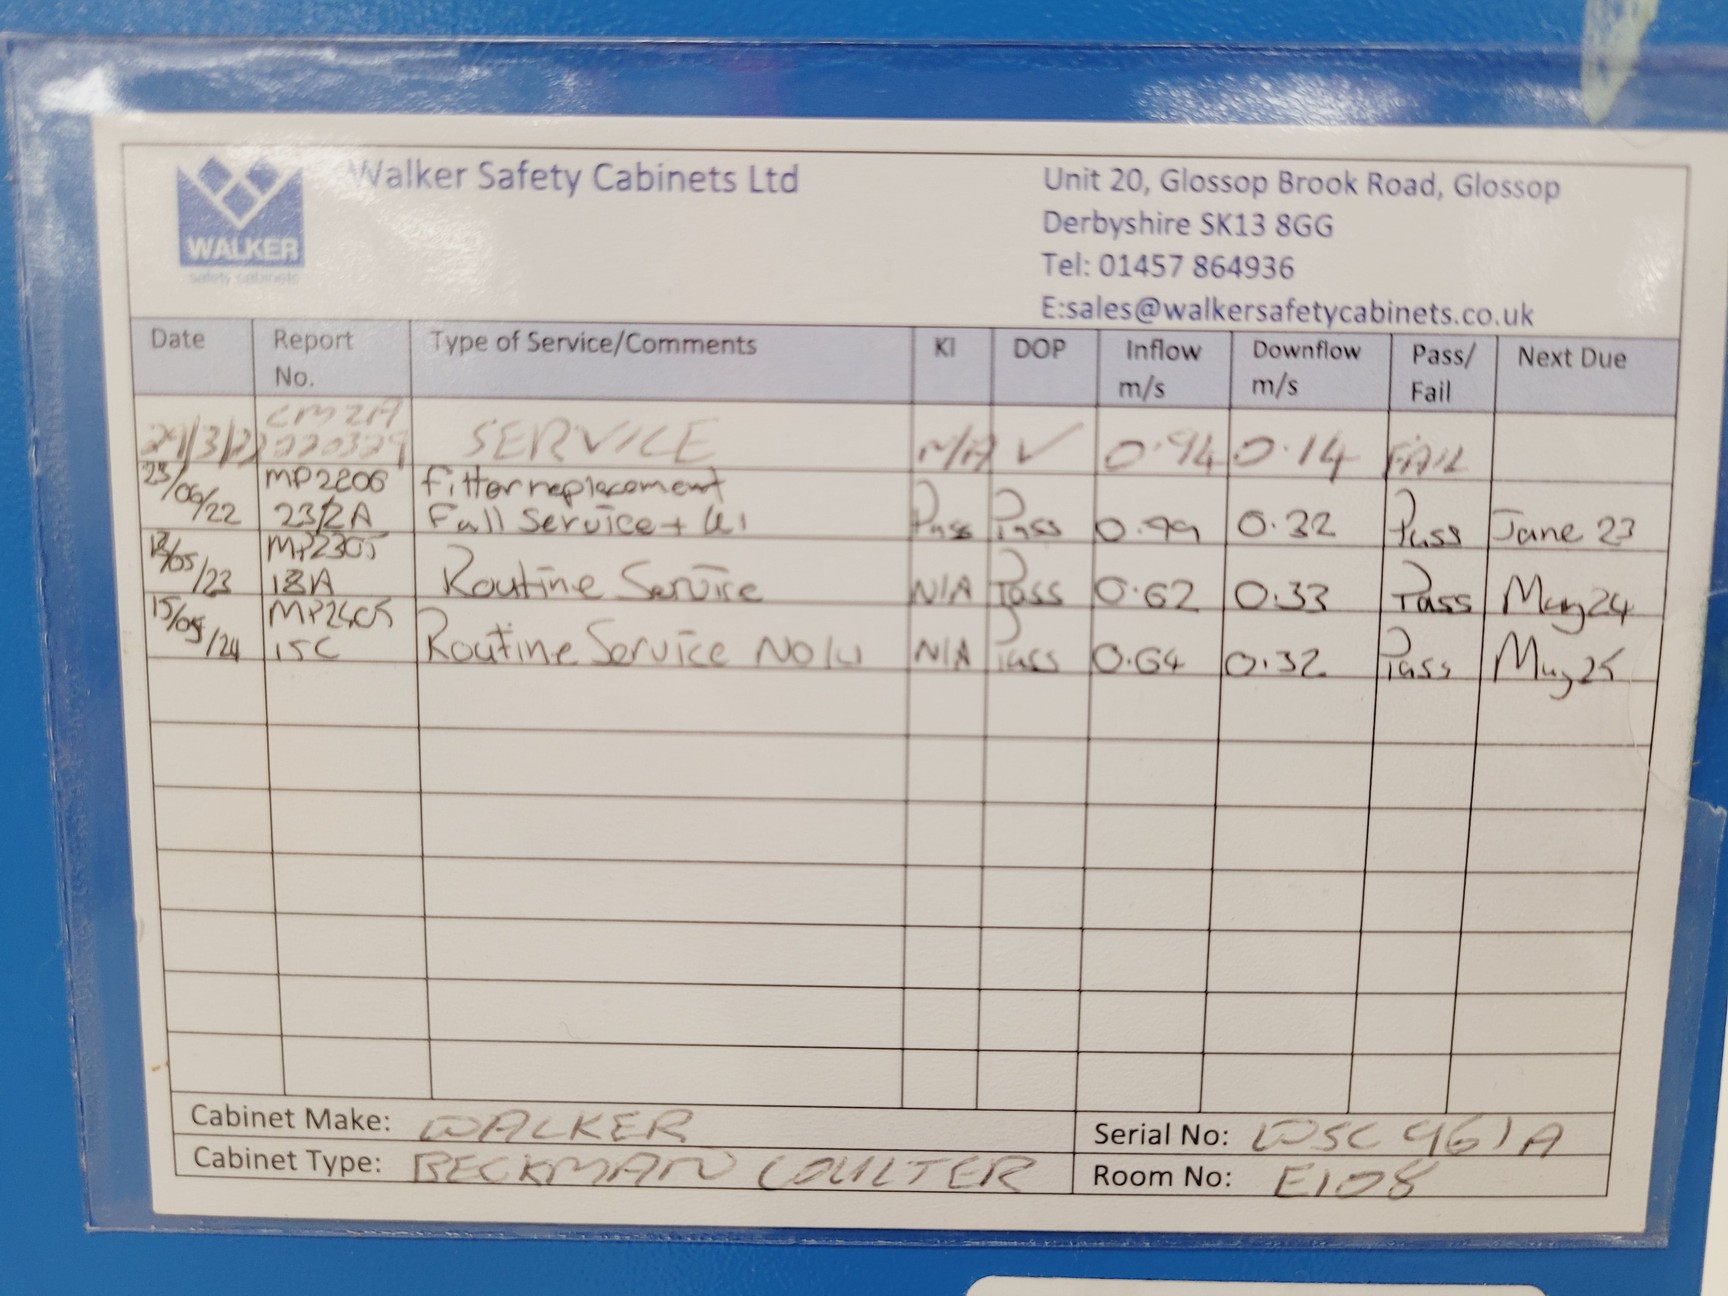 WALKER
safety cabinets
Walker Safety Cabinets Ltd
Unit 20, Glossop Brook Road, Glossop
Derbyshire SK13 8GG
Tel: 01457 864936
E:sales@walkersafetycabinets.co.uk
Date Report No. Type of Service/Comments KI DOP Inflow m/s Downflow m/s Pass/ Fail Next Due
29/3/22 CM2A 220329 SERVICE N/A ✓ 0.94 0.14 FAIL
23/06/22 MP2206 23/2A Filter replacement Full Service + KI Pass Pass 0.79 0.32 Pass June 23
/05/23 MP2305 18A Routine Service N/A Pass 0.62 0.33 Pass May 24
15/05/24 MP2405 15C Routine Service N/A Pass 0.64 0.32 Pass May 25
Cabinet Make: WALKER Serial No: WSC 961A
Cabinet Type: BECKMAN COULTER Room No: E108